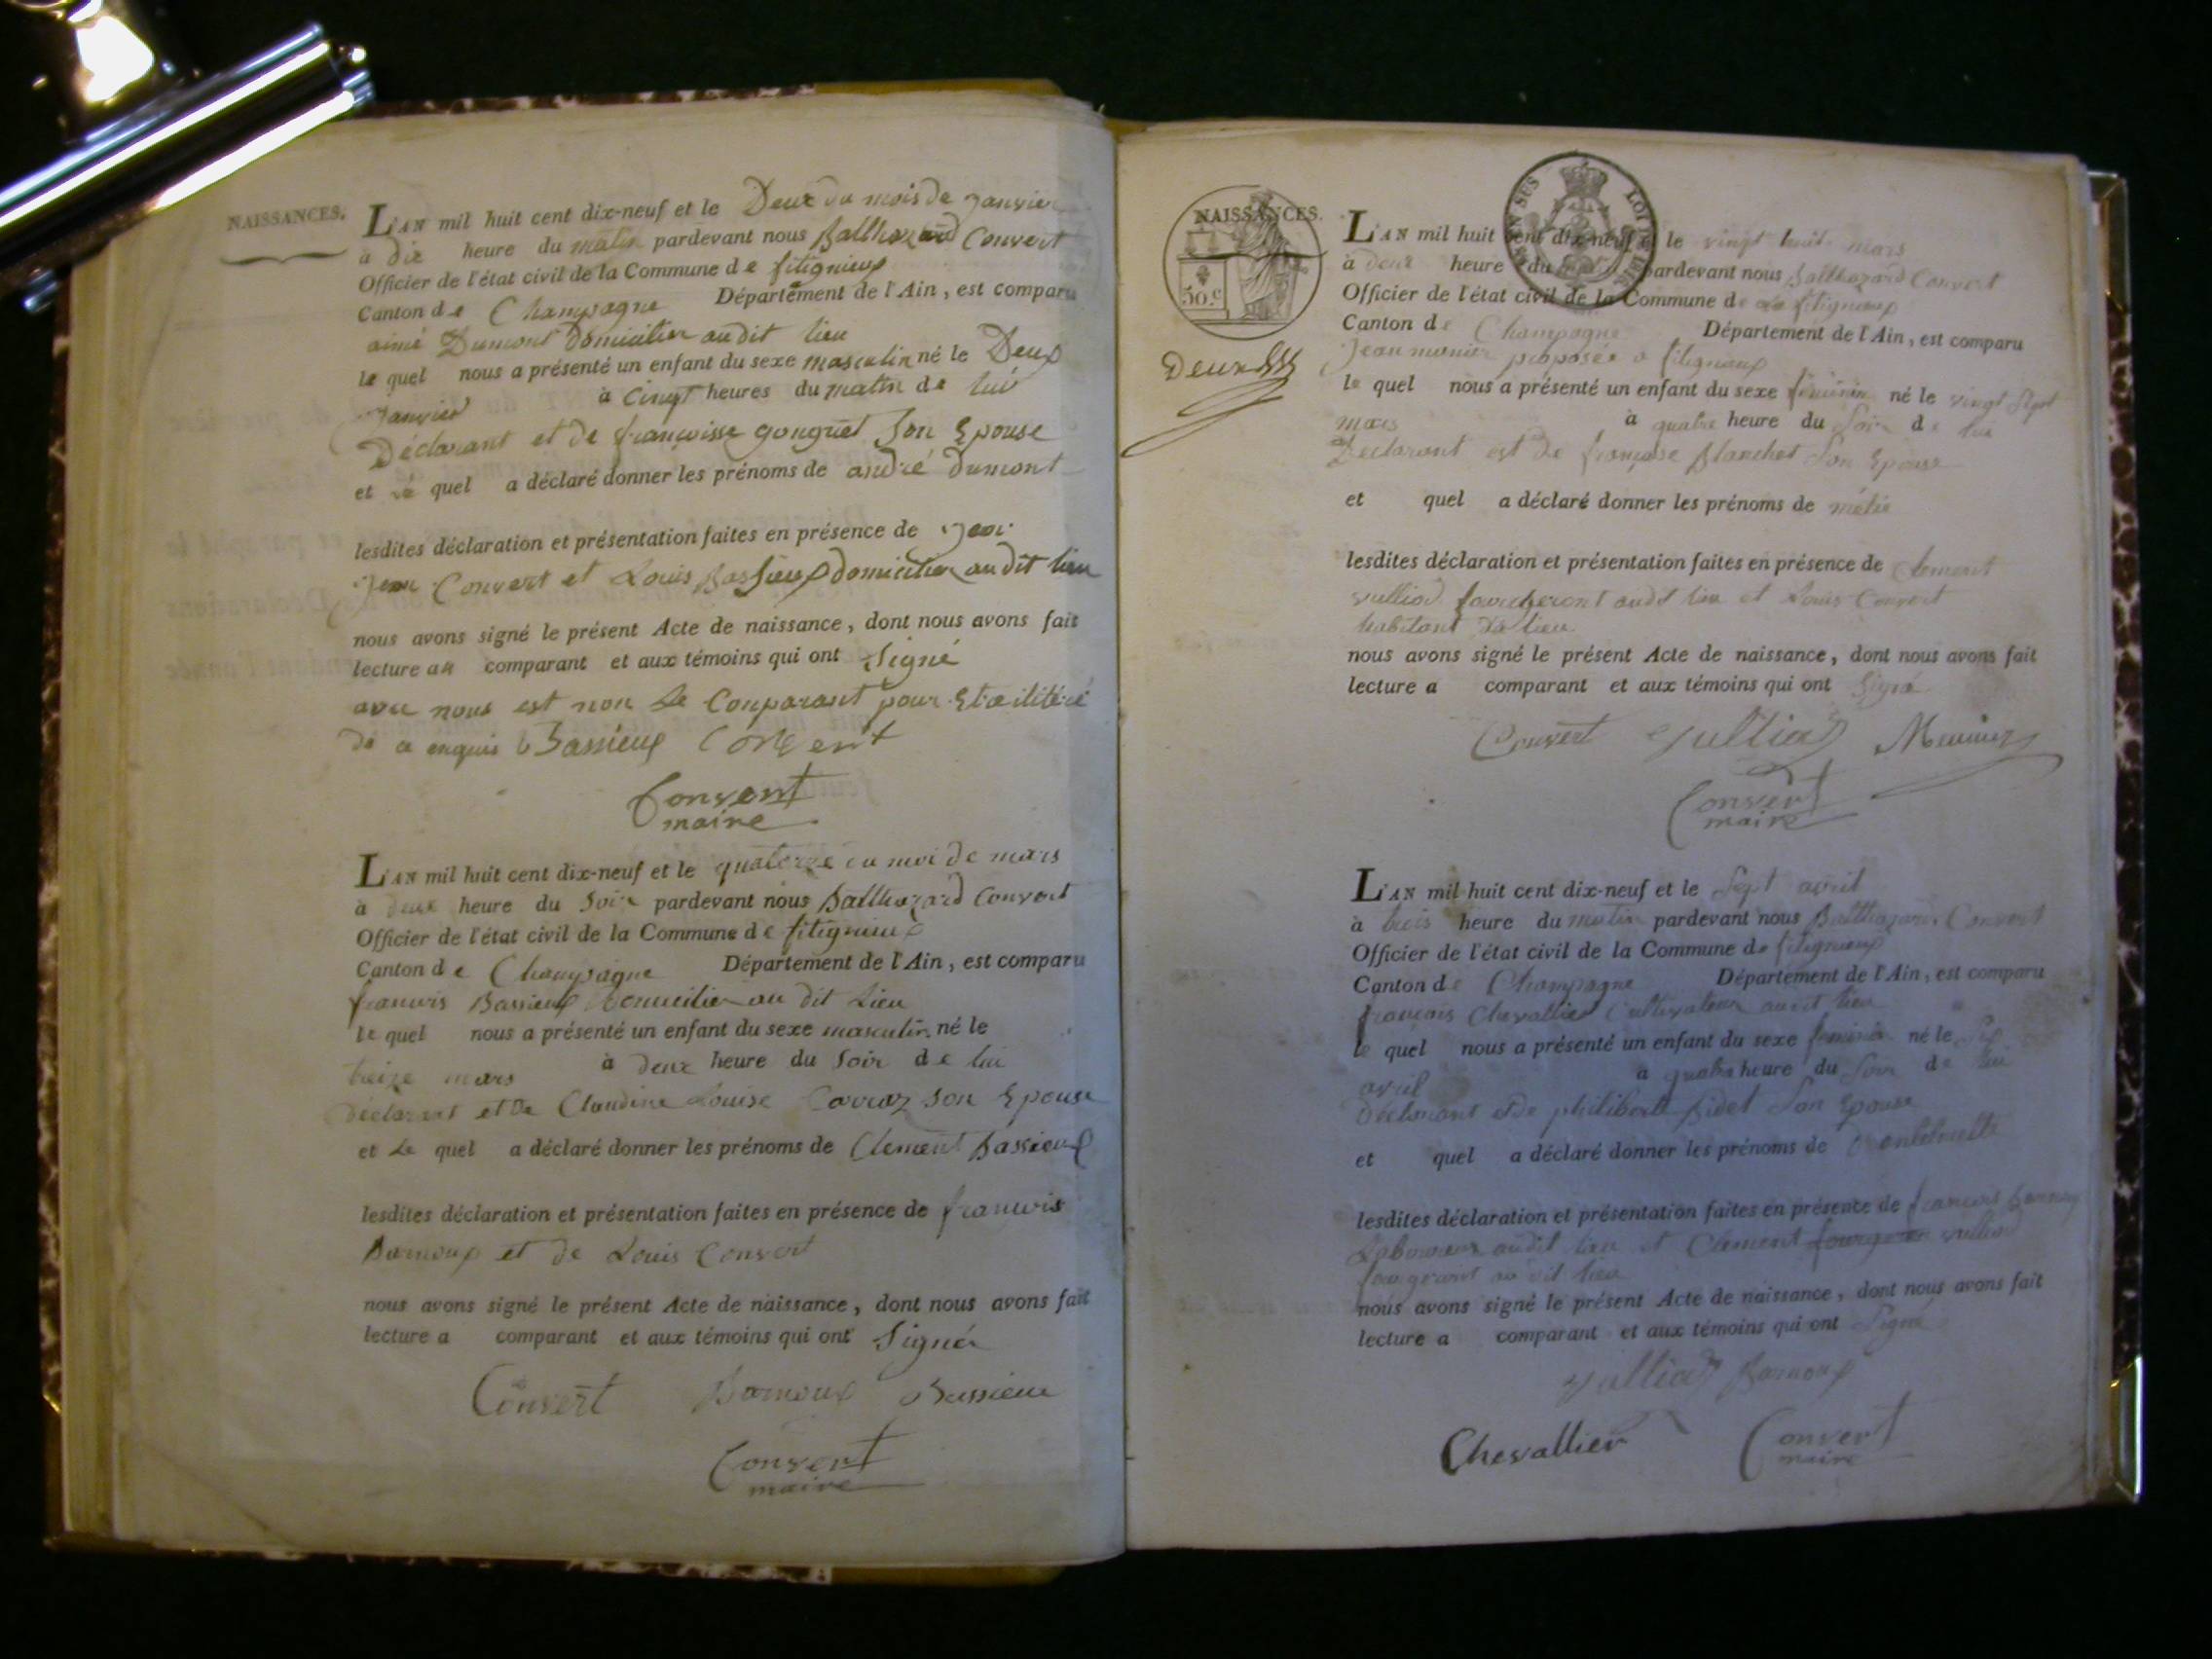 NAISSANCES.
L'AN mil huit cent dix-neuf et le Deux du mois de janvier
à dix heure du matin pardevant nous Balthazard Convert
Officier de l'état civil de la Commune de fitignieux
Canton de Champagne Département de l'Ain, est comparu
aimé Dumont domicilier audit lieu
le quel nous a présenté un enfant du sexe masculin né le Deux
janvier à Cinqt heures du matin de lui
Déclarant et de françoisse gonguet Son Epouse
et le quel a déclaré donner les prénoms de andré dumont
lesdites déclaration et présentation faites en présence de
jean Convert et Louis Bassieux domicilier audit lieu
nous avons signé le présent Acte de naissance, dont nous avons fait
lecture au comparant et aux témoins qui ont Signé
avec nous est non le Comparant pour
de ce enquis Bassieux Convert
Convert
maire
L'AN mil huit cent dix-neuf et le quatorze du moi de mars
à deux heure du Soir pardevant nous Balthazard Convert
Officier de l'état civil de la Commune de fitignieux
Canton de Champagne Département de l'Ain, est comparu
francois Bassieux domicilier au dit Lieu
le quel nous a présenté un enfant du sexe masculin né le
treize mars à deux heure du Soir de lui
déclarant et de Claudine Louise Carraz son Epouse
et Le quel a déclaré donner les prénoms de Clement Bassieux
lesdites déclaration et présentation faites en présence de francois
Barnoux et de Louis Convert
nous avons signé le présent Acte de naissance, dont nous avons fait
lecture a comparant et aux témoins qui ont Signér
Convert Barnoux Bassieux
Convert
maire
NAISSANCES.
50.c
Deux
L'AN mil huit cent dix-neuf et le vingt huit mars
à deux heure du pardevant nous Balthazard Convert
Officier de l'état civil de la Commune de fitignieux
Canton de Champagne Département de l'Ain, est comparu
Jean monier préposée a fitignieux
le quel nous a présenté un enfant du sexe féminin né le vingt Sept
mars à quatre heure du Soir de lui
Déclarant est de françoise Blanchet Son Epouse
et quel a déclaré donner les prénoms de
lesdites déclaration et présentation faites en présence de Clement
vulliod audit lieu et Louis Convert
habitant lieu
nous avons signé le présent Acte de naissance, dont nous avons fait
lecture a comparant et aux témoins qui ont Signé
Convert Vulliod Munier
Convert
maire
L'AN mil huit cent dix-neuf et le Sept avril
à trois heure du matin pardevant nous Balthazard Convert
Officier de l'état civil de la Commune de fitignieux
Canton de Champagne Département de l'Ain, est comparu
françois Chevallier Cultivateur audit lieu
le quel nous a présenté un enfant du sexe feminin né le
avril à quatre heure du Soir de lui
déclarant et de philiberte Son Epouse
et quel a déclaré donner les prénoms de
lesdites déclaration et présentation faites en présence de francois Barnoux
Laboureur audit lieu et Clement vulliod
au dit lieu
nous avons signé le présent Acte de naissance, dont nous avons fait
lecture a comparant et aux témoins qui ont Signé
Vulliod Barnoux
Chevallier Convert
maire